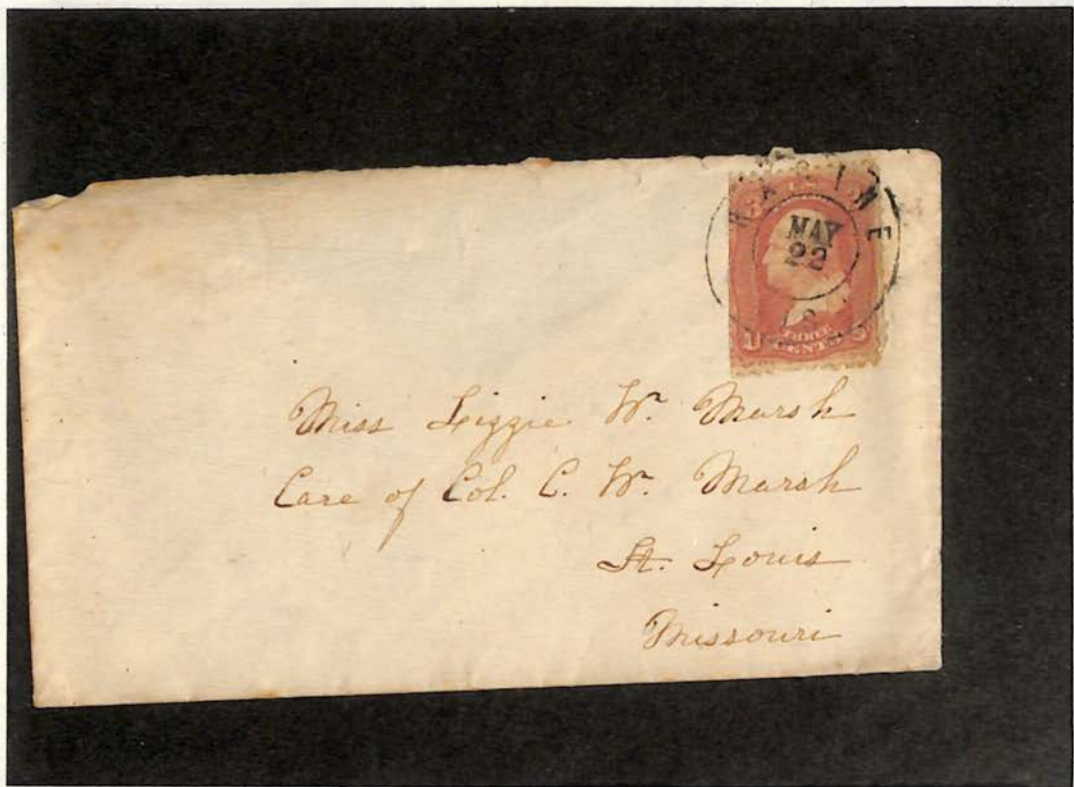 RACINE
MAY
22
U 3
THREE
CENTS
Miss Lizzie W. Marsh
Care of Col. C. W. Marsh
St. Louis
Missouri